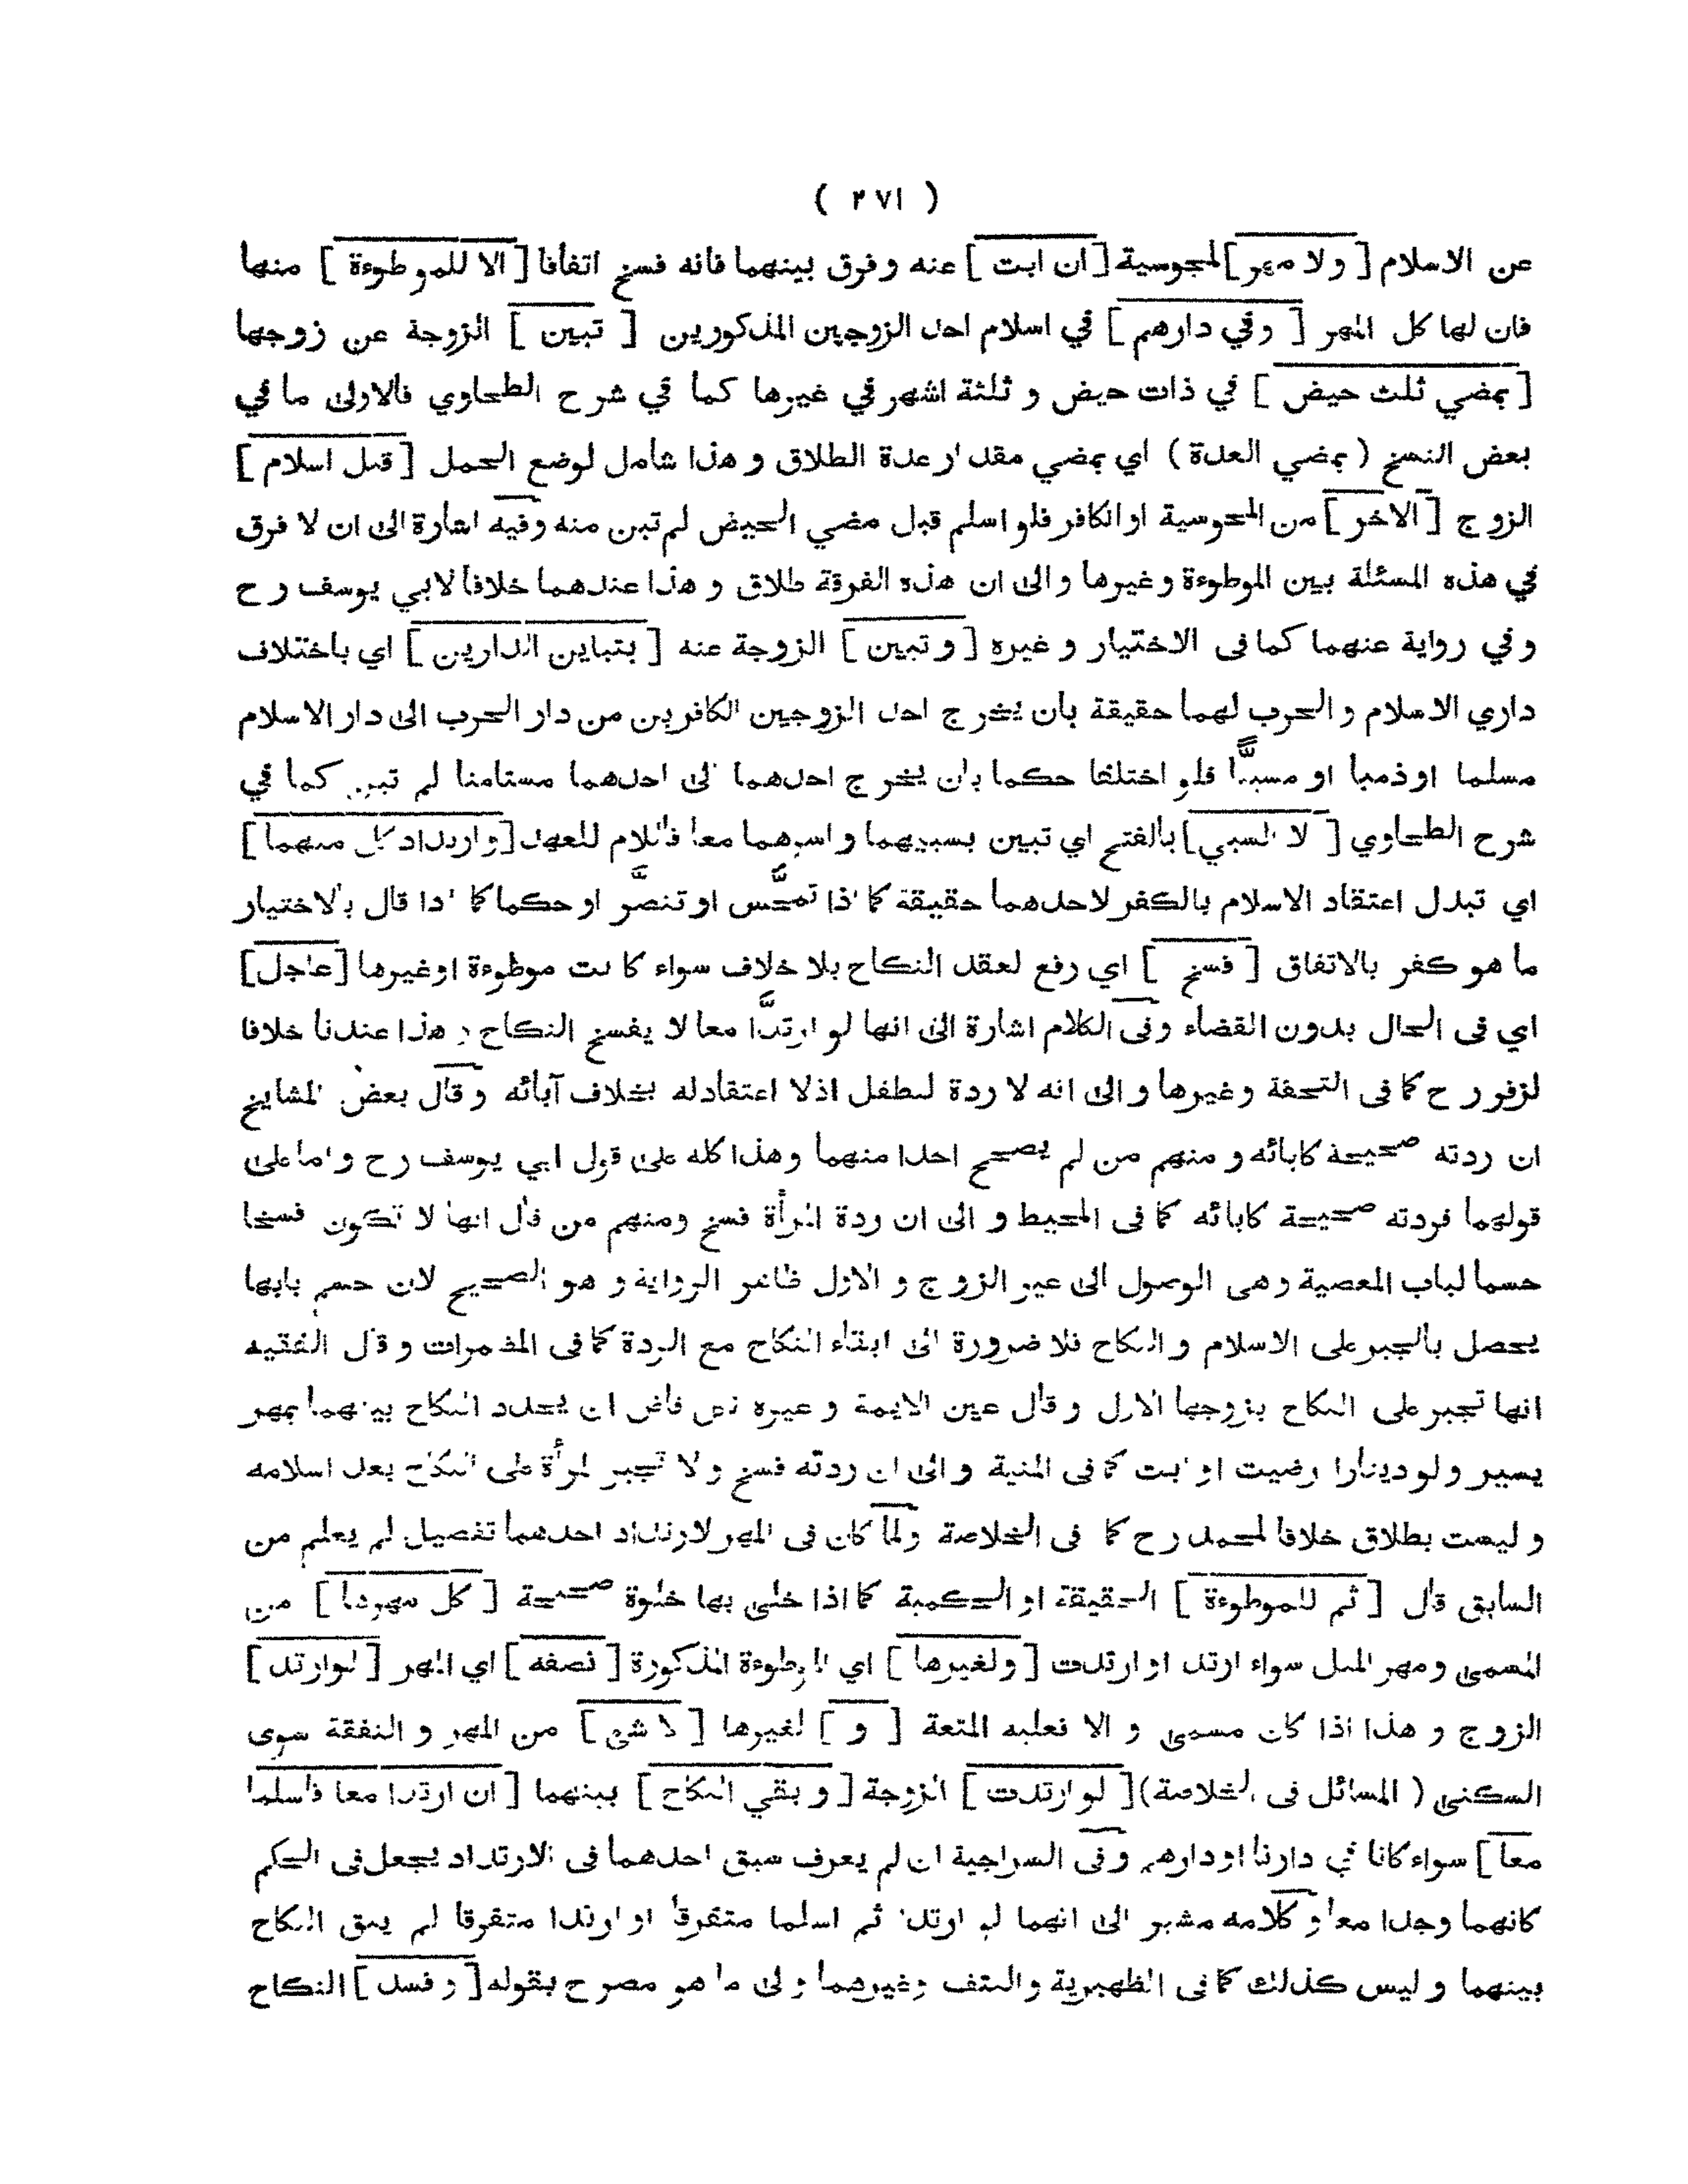 ( ٣٧١ )
عن الاسلام [ ولا مهر ] لمجوسية [ ان ابت ] عنه وفرق بينهما فانه فسخ اتفاقا [ الا للموطوءة ] منها
فان لها كل المهر [ وفي دارهم ] في اسلام احد الزوجين المذكورين [ تبين ] الزوجة عن زوجها
[ بمضي ثلث حيض ] في ذات حيض و ثلثة اشهر في غيرها كما في شرح الطحاوي فالاولى ما في
بعض النسخ ( بمضي العدة ) اي بمضي مقدار عدة الطلاق و هذا شامل لوضع الحمل [ قبل اسلام ]
الزوج [ الاخر ] من المجوسية او الكافر فلو اسلم قبل مضي الحيض لم تبن منه وفيه اشارة الى ان لا فرق
في هذه المسئلة بين الموطوءة وغيرها و الى ان هذه الفرقة طلاق و هذا عندهما خلافا لابي يوسف رح
و في رواية عنهما كما فى الاختيار و غيره [ و تبين ] الزوجة عنه [ بتباين الدارين ] اي باختلاف
داري الاسلام و الحرب لهما حقيقة بان يخرج احد الزوجين الكافرين من دار الحرب الى دار الاسلام
مسلما او ذميا او مسبيًّا فلو اختلفا حكما بان يخرج احدهما الى احدهما مستامنا لم تبن كما في
شرح الطحاوي [ لا السبي ] بالفتح اي تبين بسبيهما و اسرهما معا فاللام للعهد [ وارتداد كل منهما ]
اي تبدل اعتقاد الاسلام بالكفر لاحدهما حقيقة كما اذا تمجَّس او تنصَّر او حكما كما اذا قال بالاختيار
ما هو كفر بالاتفاق [ فسخ ] اي رفع لعقد النكاح بلا خلاف سواء كانت موطوءة او غيرها [ عاجل ]
اي فى الحال بدون القضاء وفى الكلام اشارة الى انها لو ارتدَّا معا لا يفسخ النكاح و هذا عندنا خلافا
لزفر رح كما فى التحفة وغيرها و الى انه لا ردة لطفل اذ لا اعتقاد له بخلاف آبائه وقال بعض المشايخ
ان ردته صحيحة كابائه و منهم من لم يصحح احدا منهما وهذا كله على قول ابي يوسف رح واما على
قولهما فردته صحيحة كابائه كما فى المحيط و الى ان ردة المرأة فسخ ومنهم من قال انها لا تكون فسخا
حسما لباب المعصية وهى الوصول الى غير الزوج و الاول ظاهر الرواية و هو الصحيح لان حسم بابها
يحصل بالجبر على الاسلام و النكاح فلا ضرورة الى ابقاء النكاح مع الردة كما فى المضمرات و قال الفقيه
انها تجبر على النكاح بزوجها الاول و قال عين الايمة و غيره لكل قاض ان يجدد النكاح بينهما بمهر
يسير ولو دينارا رضيت او ابت كما فى المنية و الى ان ردته فسخ و لا تجبر المرأة على النكاح بعد اسلامه
و ليست بطلاق خلافا لمحمد رح كما فى الخلاصة ولما كان فى المهر لارتداد احدهما تفصيل لم يعلم من
السابق قال [ ثم للموطوءة ] الحقيقة او الحكمية كما اذا خلى بها خلوة صحيحة [ كل مهرها ] من
المسمى ومهر المثل سواء ارتد او ارتدت [ ولغيرها ] اي الموطوءة المذكورة [ نصفه ] اي المهر [ لو ارتد ]
الزوج و هذا اذا كان مسمى و الا فعليه المتعة [ و ] لغيرها [ لا شئ ] من المهر و النفقة سوى
السكنى ( المسائل فى الخلاصة ) [ لو ارتدت ] الزوجة [ و بقي النكاح ] بينهما [ ان ارتدا معا فاسلما
معا ] سواء كانا في دارنا او دارهم وفى السراجية ان لم يعرف سبق احدهما فى الارتداد يجعل فى الحكم
كانهما وجدا معا و كلامه مشير الى انهما لو ارتدا ثم اسلما متفرقا او ارتدا متفرقا لم يبق النكاح
بينهما و ليس كذلك كما فى الظهيرية والنتف وغيرهما والى ما هو مصرح بقوله [ و فسد ] النكاح